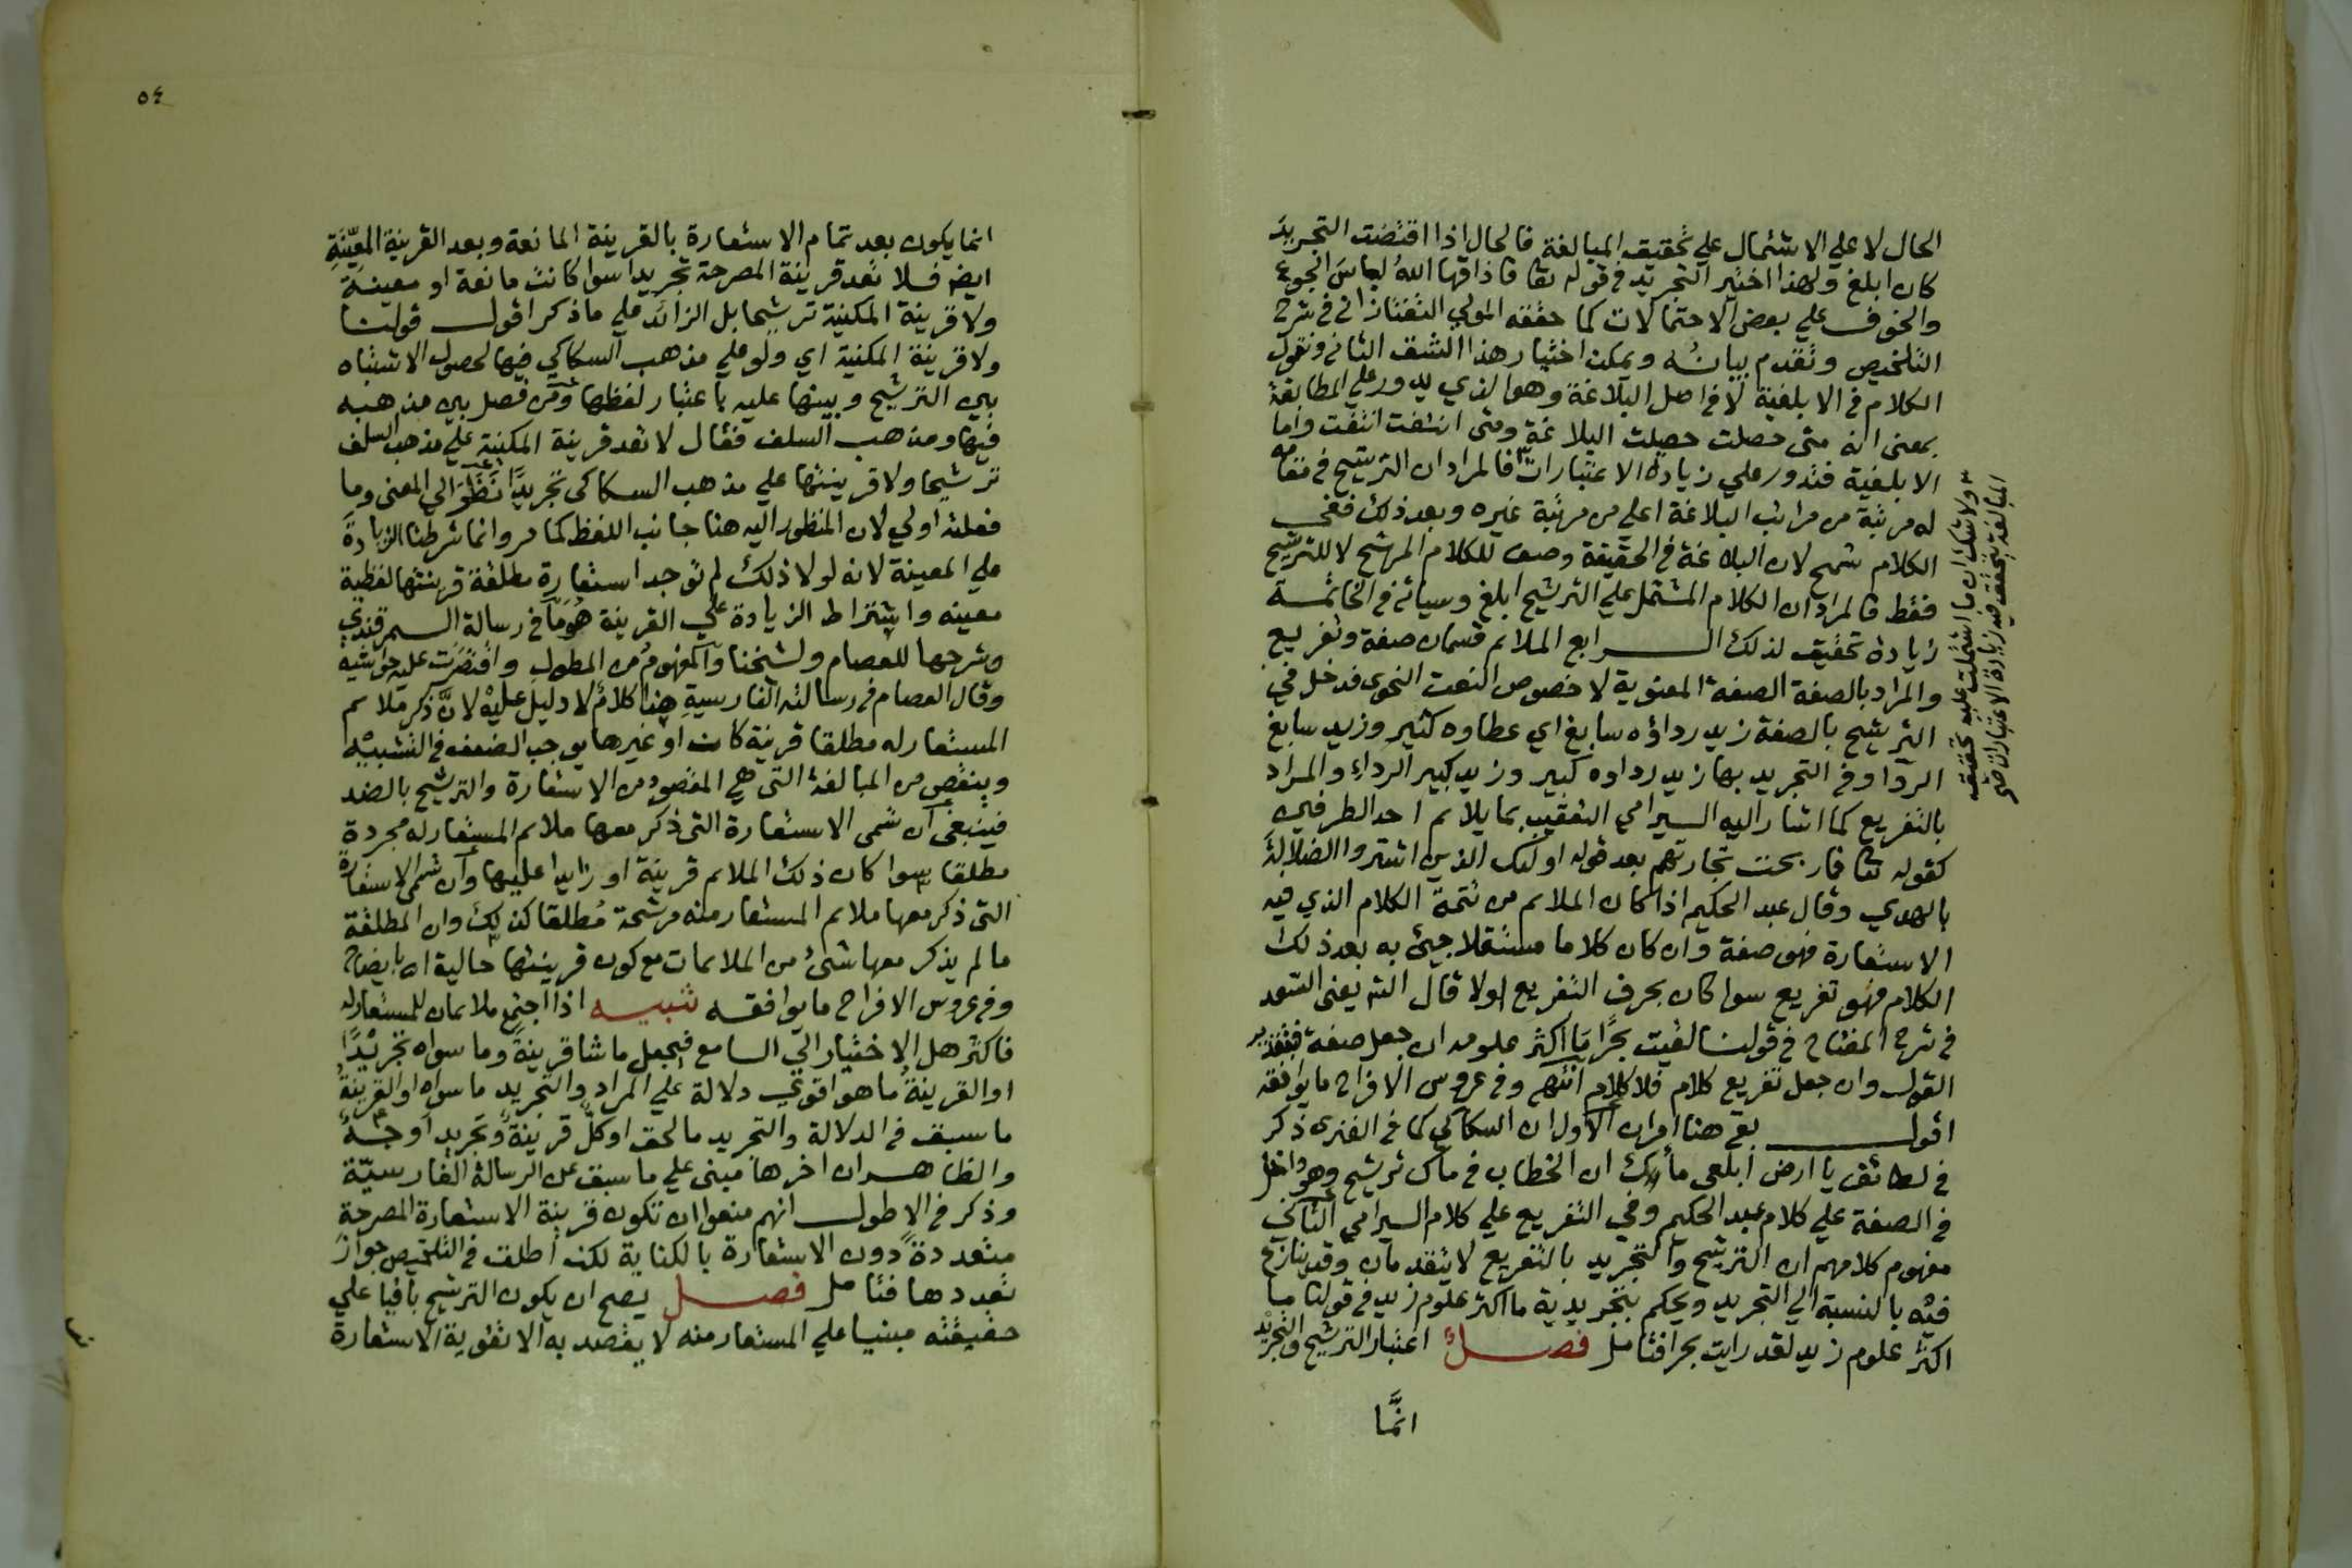 الحال لا علي الاشتمال علي تحقيق المبالغة فالحال اذا اقتضت التجريد
كان ابلغ ولهذا اختير التجريد في قوله تعا فاذاقها الله لباس الجوع
والخوف علي بعض الاحتمالات كما حققه المولي التفتازاني في شرح
التلخيص وتقدم بيانه ويمكن اختيار هذا الشق الثاني ونقول
الكلام في الابلغية لا في اصل البلاغة وهو الذي يدور علي المطابقة
بمعني انه متي حصلت حصلت البلاغة ومتي انتفت انتفت واما
الابلغية فتدور علي زيادة الاعتبارات فالمراد ان الترشيح في مقامه
له مرتبة من مراتب البلاغة اعلي من مرتبة غيره وبعد ذلك ففي
الكلام تسمح لان البلاغة في الحقيقة وصف للكلام المرشح لا للترشيح
فقط فالمراد ان الكلام المشتمل علي الترشيح ابلغ وسياتي في الخاتمة
زيادة تحقيق لذلك الرابع الملائم قسمان صفة وتفريع
والمراد بالصفة الصفة المعنوية لا خصوص النعت النحوي فدخل في
الترشيح بالصفة زيد رداؤه سابغ اي عطاوه كثير وزيد سابغ
الردا وفي التجريد بها زيد رداوه كبير وزيد كبير الرداء والمراد
بالتفريع كما اشار اليه السيرامي التعقيب بما يلائم احد الطرفين
كقوله تعا فما ربحت تجارتهم بعد قوله اولئك الذين اشتروا الضلالة
بالهدي وقال عبد الحكيم اذا كان الملائم من تتمة الكلام الذي فيه
الاستعارة فهو صفة وان كان كلاما مستقلا جيئ به بعد ذلك
الكلام فهو تفريع سوا كان بحرف التفريع اولا قال الش يعني السعد
في شرح المفتاح في قولنا لقيت بحرا ما اكثر علومه ان جعل صفة فبتقدير
القول وان جعل تفريع كلام فلا كلام انتهي وفي عروس الافراح ما يوافقه
اقول بقي هنا امران الاول ان السكاكي كما في الفنري ذكر
في لطائف يا ارض ابلعي ماءك ان الخطاب في ماك ترشيح وهو داخل
في الصفة علي كلام عبد الحكيم وفي التفريع علي كلام السيرامي الثاني
مفهوم كلامهم ان الترشيح والتجريد بالتفريع لا يتقدمان وقد ينازع
فيه بالنسبة الي التجريد ويحكم بتجريدية ما اكثر علوم زيد في قولنا ما
اكثر علوم زيد لقد رايت بحرا فتامل فصل اعتبار الترشيح والتجريد
انما
ولا شك ان ما اشتملت عليه تحقيق
المبالغة تتحقق فيه زيادة الاعتبارات صح
٥٤
انما يكون بعد تمام الاستعارة بالقرينة المانعة وبعد القرينة المعينة
ايضا فلا تعد قرينة المصرحة تجريدا سوا كانت مانعة او معينة
ولا قرينة المكنية ترشيحا بل الزائد علي ما ذكر اقول قولنا
ولا قرينة المكنية اي ولو علي مذهب السكاكي فيها لحصول الاشتباه
بين الترشيح وبينها عليه باعتبار لفظها ومن فصل بين مذهبه
فيها ومذهب السلف فقال لا تعد قرينة المكنية علي مذهب السلف
ترشيحا ولا قرينتها علي مذهب السكاكي تجريدا نظر الي المعني وما
فعلته اولي لان المنظور اليه هنا جانب اللفظ كما مر وانما شرطنا الزيادة
علي المعينة لانه لولا ذلك لم توجد استعارة مطلقة قرينتها لفظية
معينه واشتراط الزيادة علي القرينة هو ما في رسالة السمرقندي
وشرحها للعصام ولشيخنا والمفهوم من المطول واقتصرت عليه حواشيه
وقال العصام في رسالته الفارسية هذا كلام لا دليل عليه لان ذكر ملائم
المستعار له مطلقا قرينة كانت او غيرها يوجب الضعف في التشبيه
وينقص من المبالغة التي هي المقصود من الاستعارة والترشيح بالضد
فينبغي ان تسمي الاستعارة التي ذكر معها ملائم المستعار له مجردة
مطلقا سوا كان ذلك الملائم قرينة او زايدا عليها وان تسمي الاستعارة
التي ذكر معها ملائم المستعار منه مرشحة مطلقا كذلك وان المطلقة
ما لم يذكر معها شئ من الملائمات مع كون قرينتها حالية اه بايضاح
وفي عروس الافراح ما يوافقه تنبيه اذا اجتمع ملائمان للمستعار له
فاكثر هل الاختيار الي السامع فيجعل ما شا قرينة وما سواه تجريدا
او القرينة ما هو اقوي دلالة علي المراد والتجريد ما سواه او القرينة
ما سبق في الدلالة والتجريد ما لحق او كل قرينة وتجريد اوجه
والظاهر ان اخرها مبني علي ما سبق عن الرسالة الفارسية
وذكر في الاطول انهم منعوا ان تكون قرينة الاستعارة المصرحة
متعددة دون الاستعارة بالكناية لكن اطلق في التلخيص جواز
تعددها فتامل فصل يصح ان يكون الترشيح باقيا علي
حقيقته مبنيا علي المستعار منه لا يقصد به الا تقوية الاستعارة